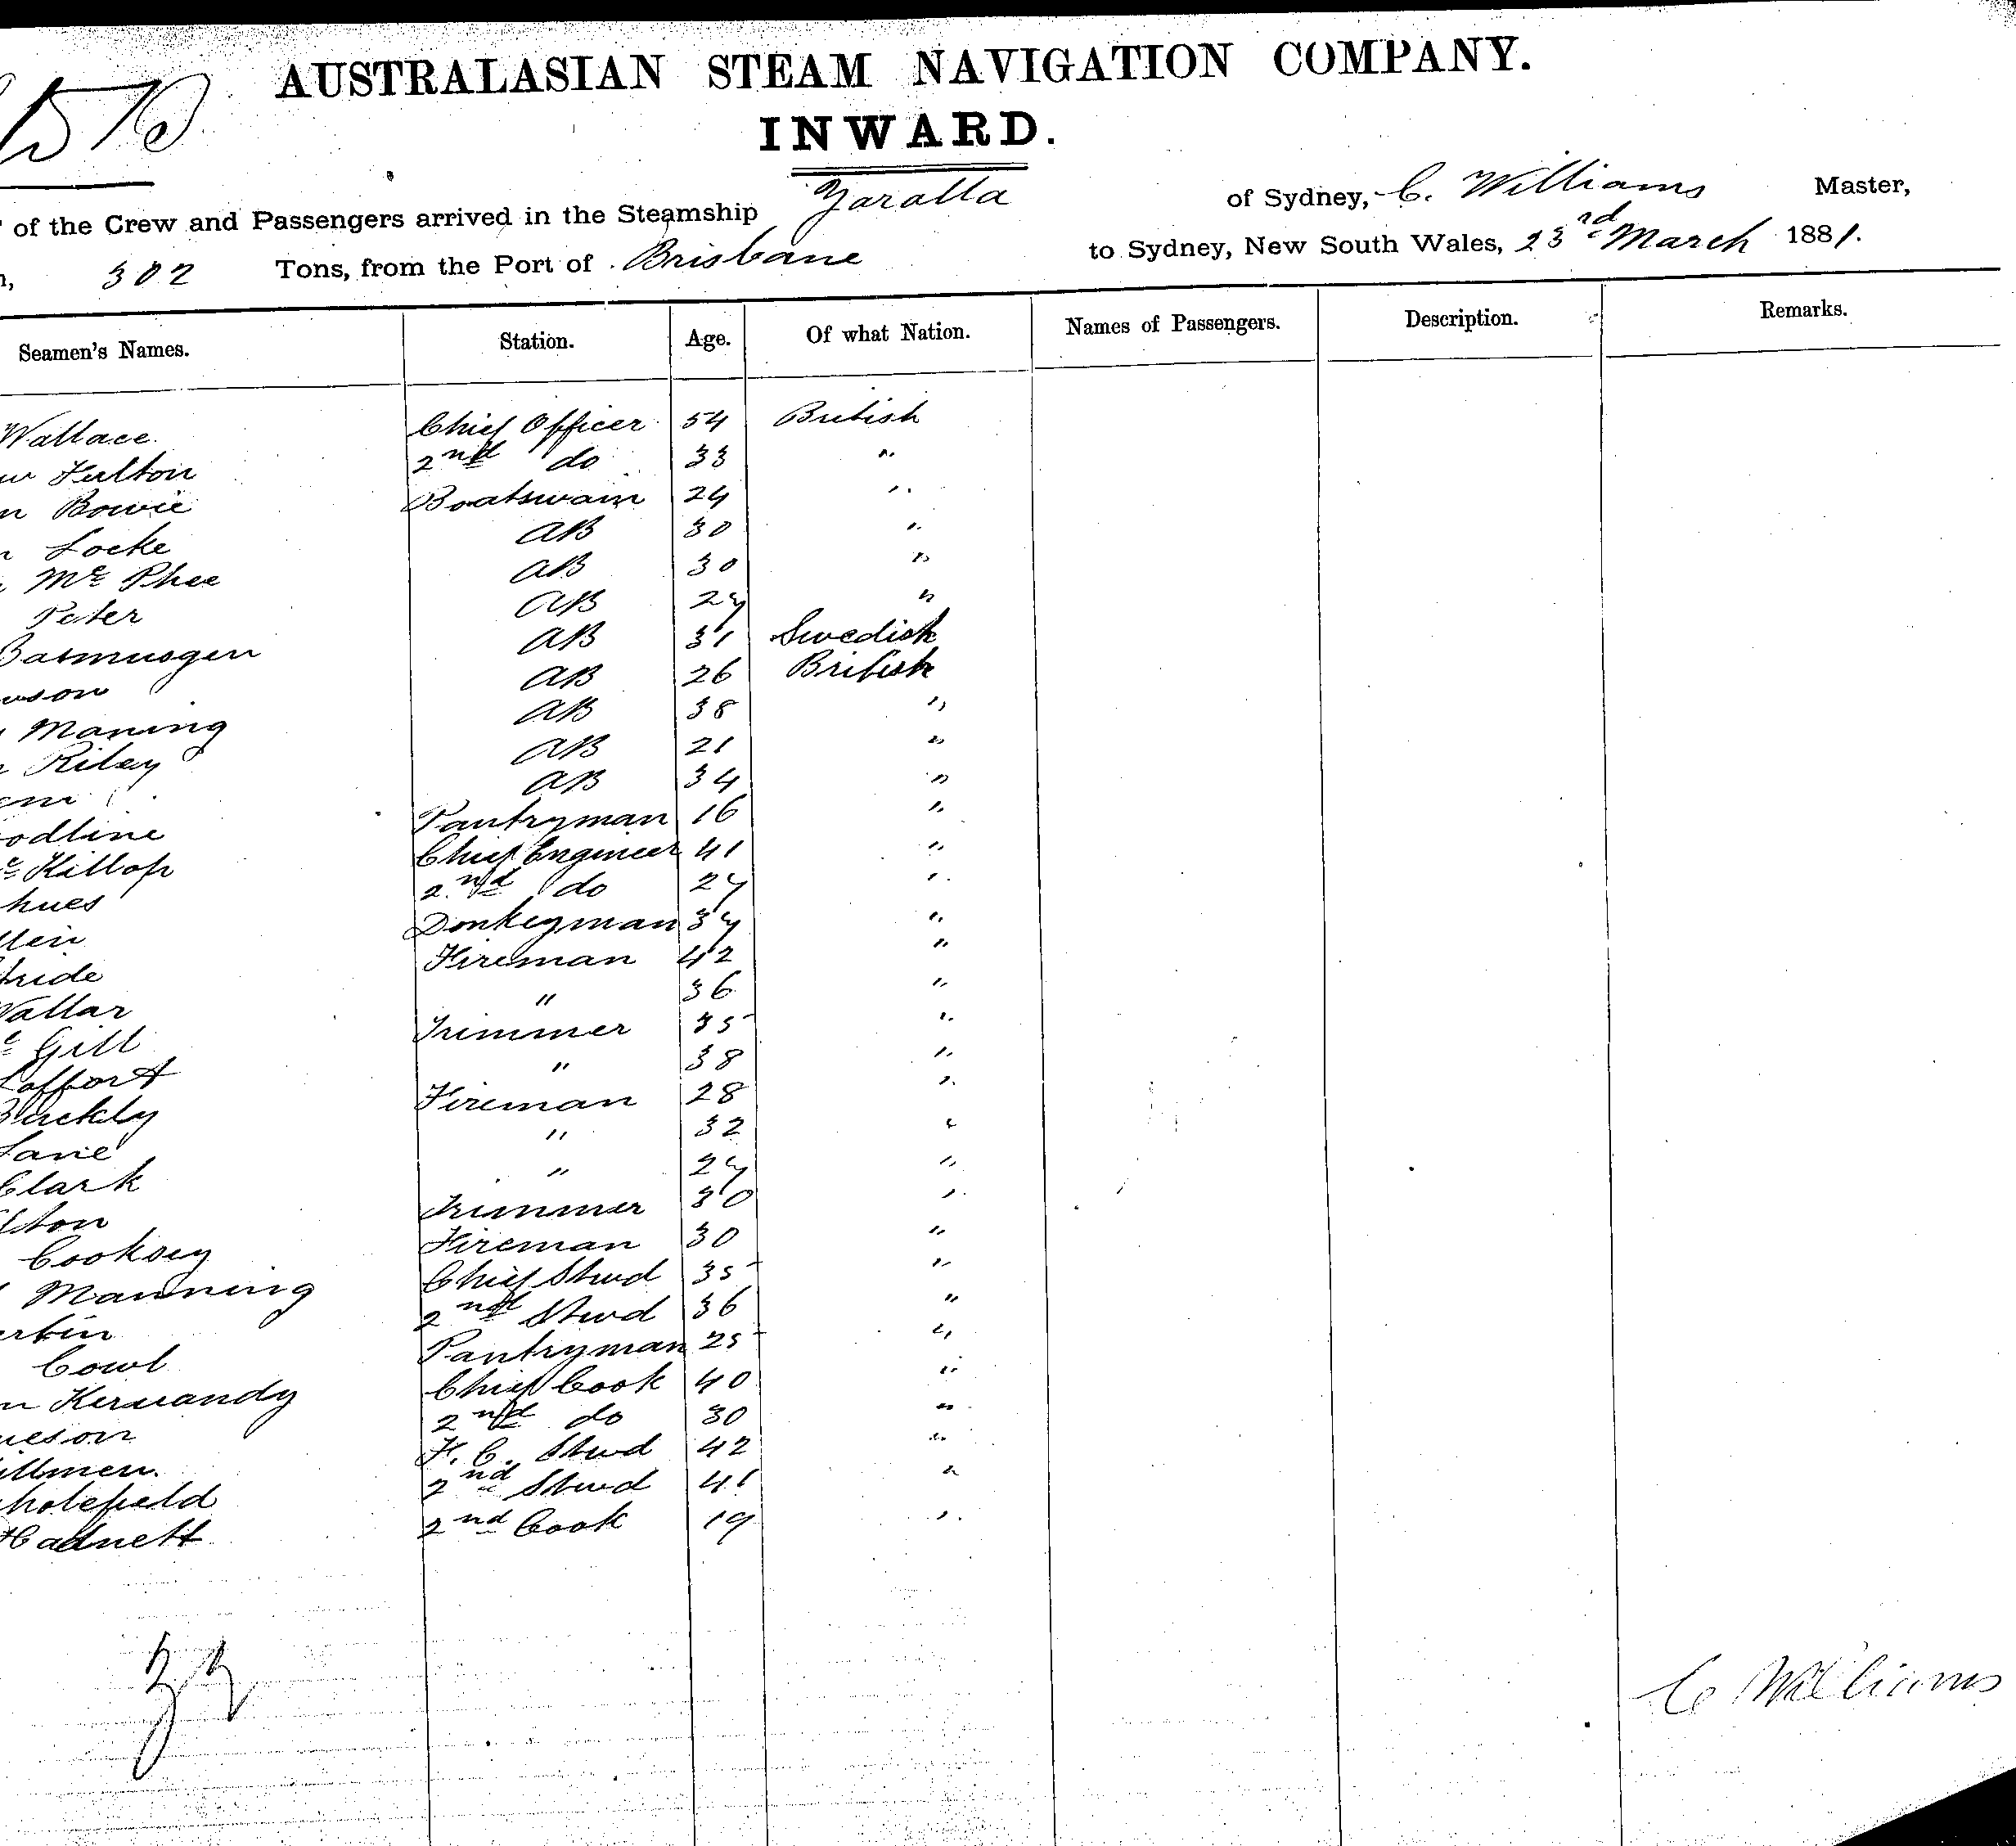 AUSTRALASIAN STEAM NAVIGATION COMPANY.
INWARD.
of the Crew and Passengers arrived in the Steamship Yaralla of Sydney, C. Williams Master,
302 Tons, from the Port of Brisbane to Sydney, New South Wales, 23rd March 1881.
Seamen's Names. Station. Age. Of what Nation. Names of Passengers. Description. Remarks.
Wallace Chief Officer 54 British
w Fulton 2nd do 33 "
n Bowie Boatswain 24 "
Locke AB 30 "
Mc Phee AB 30 "
Peter AB 27 "
AB 31 Swedish
son AB 26 British
Maning AB 38 "
Riley AB 21 "
em AB 34 "
odline Pantryman 16 "
c Killop Chief Engineer 41 "
hues 2nd do 27 "
llen Donkeyman 37 "
Fireman 42 "
Wallar " 36 "
c Gill Trimmer 35 "
Laffort " 38 "
Buckly Fireman 28 "
Lane " 32 "
Clark " 27 "
lton Trimmer 30 "
Cooksey Fireman 30 "
Manning Chief Stwd 35 "
rtin 2nd Stwd 36 "
Cowl Pantryman 25 "
n Kernandy Chief Cook 40 "
2nd do 30 "
illmen. F. C. Stwd 42 "
holefield 2nd Stwd 41 "
Hadnett 2nd Cook 19 "
C Williams